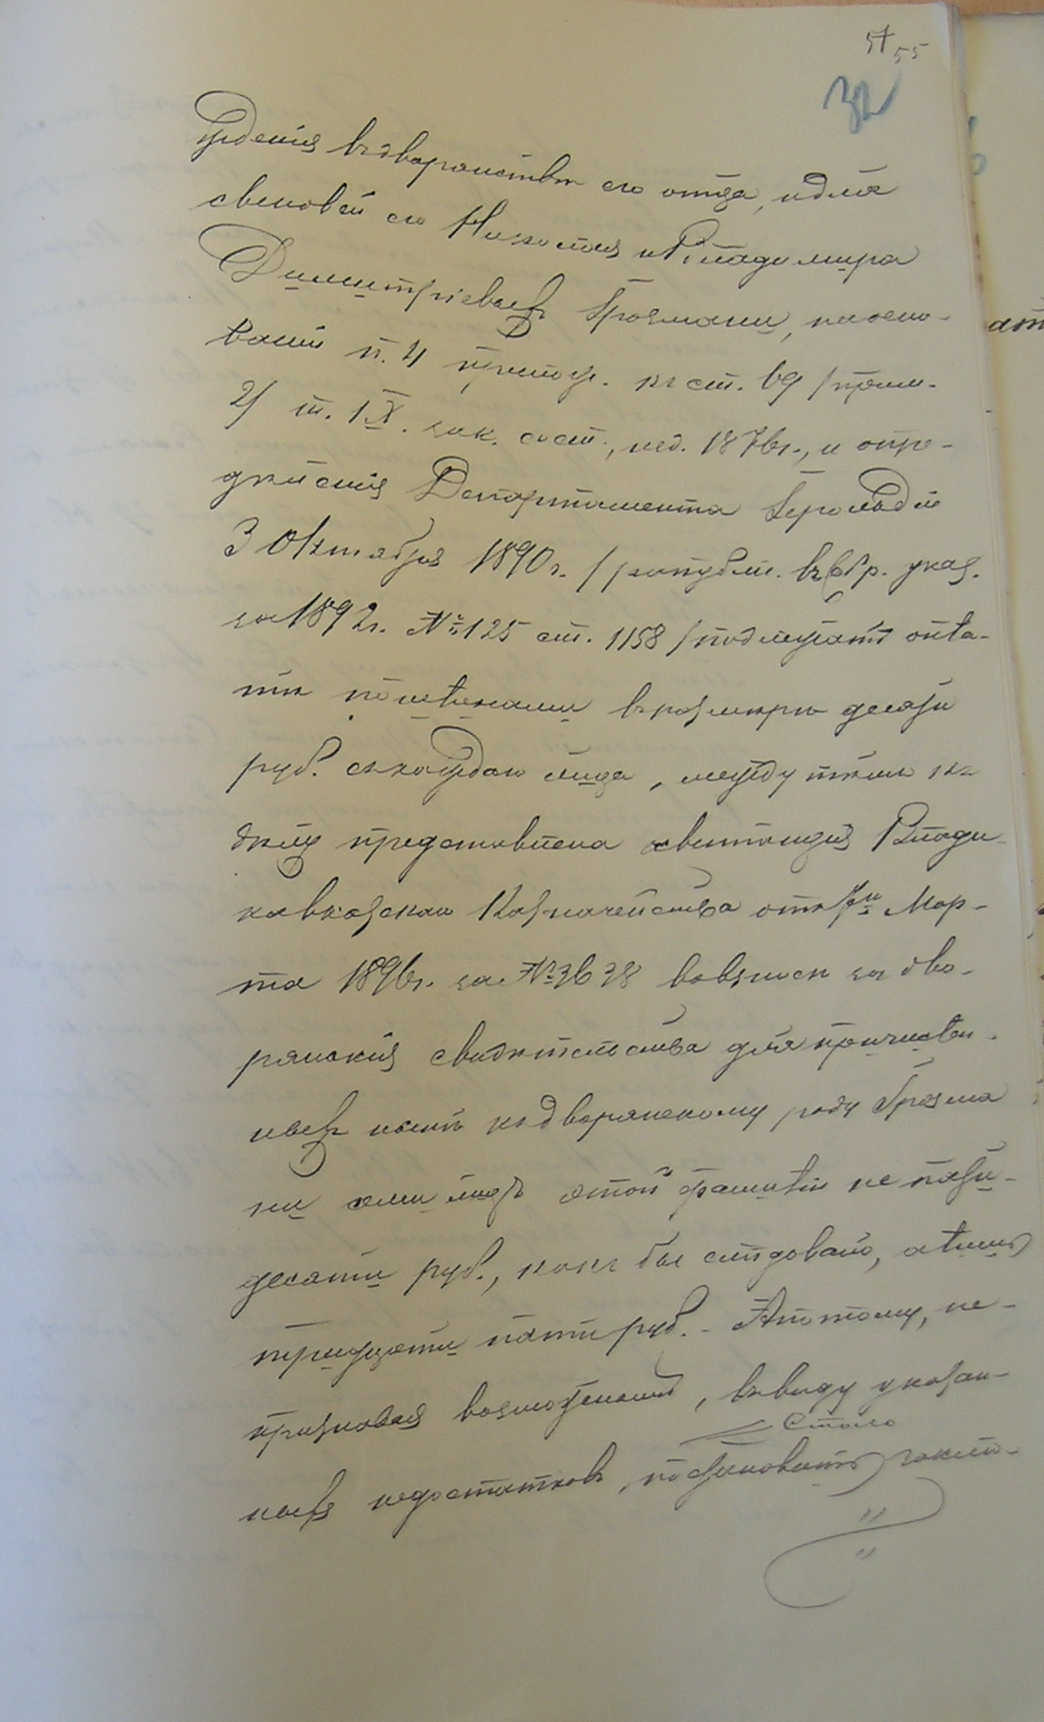 57 55
32
жденія въ дворянствѣ его отца, и для
сыновей его Николая и Владимира
Димитріевыхъ Грозмани, на осно-
ваніи п. 4 прилож. къ ст. 69 /прим.
2/ т. IX. зак. сост., изд. 1876г., и опре-
дѣленія Департамента Герольдіи
3 Октября 1890г. /распубл. въ Собр. указ.
за 1892г. № 125 ст. 1158 /подлежатъ опла-
тѣ пошлинами въ размѣрѣ десяти
руб. съ каждаго лица, между тѣмъ къ
дѣлу представлена квитанція Влади-
кавказскаго Казначейства отъ Мар-
та 1896г. за № 3638 во взносѣ за дво-
рянскія свидѣтельства для причислен-
ныхъ нынѣ къ дворянскому роду Грозма
ни лицъ этой фамиліи не пяти-
десяти руб., какъ бы слѣдовало, а лишь
тридцати пяти руб. - А потому, не
признавая возможнымъ, въ виду указан-
стало
ныхъ недостатковъ, постановить заклю-